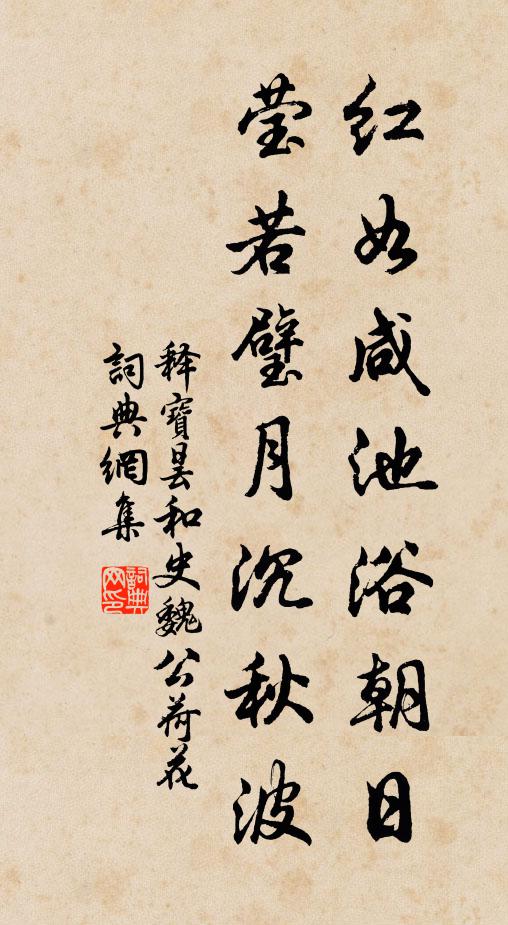 红如咸池浴朝日
莹若璧月沉秋波
释寶昙和史魏公荷花
詞典網集
詞典
网印